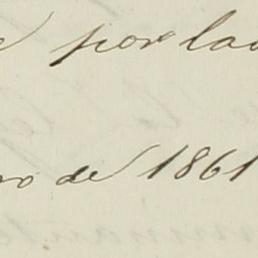 por la
ro de 1861